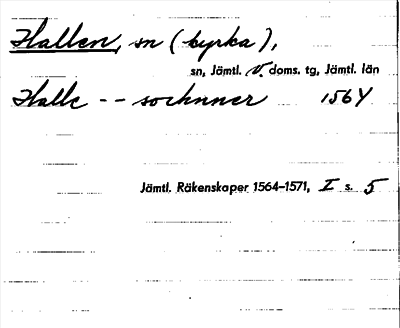 Hallen, sn (kyrka),
sn, Jämtl. v. doms. tg, Jämtl. län
Halle -- sochnner 1564
Jämtl. Räkenskaper 1564-1571, I s. 5